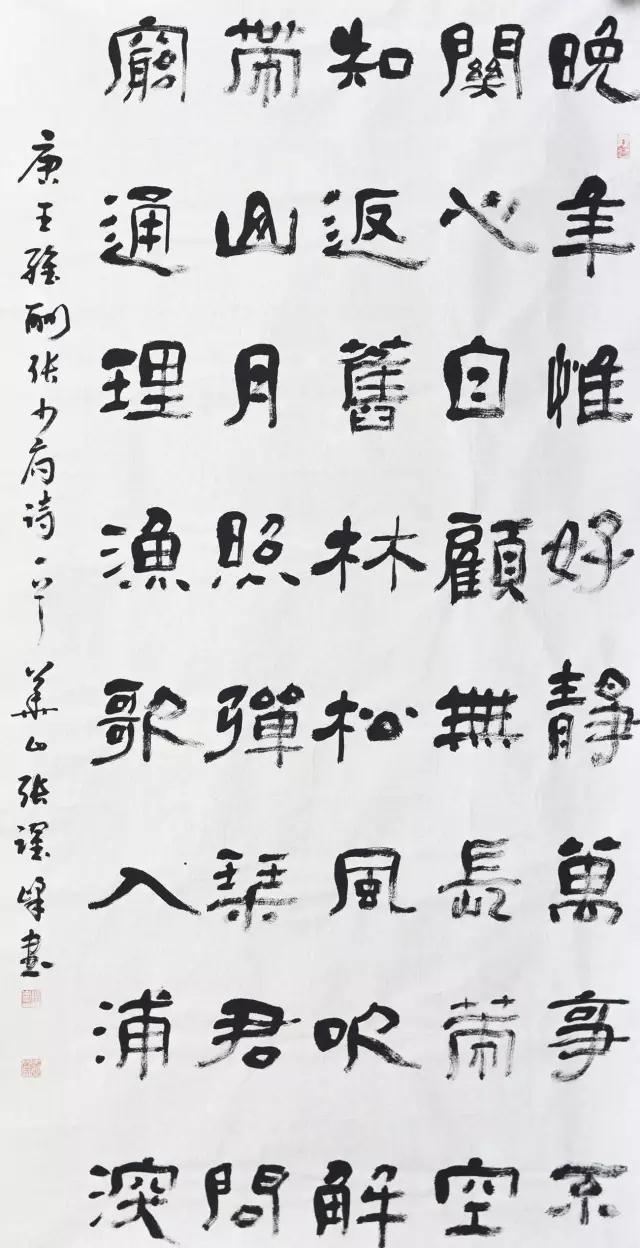 晚年惟好靜萬事不
關心自顧無長策空
知返舊林松風吹解
帶山月照彈琹君問
窮通理漁歌入浦深
唐王維酬张少府诗一首 華山张峰書